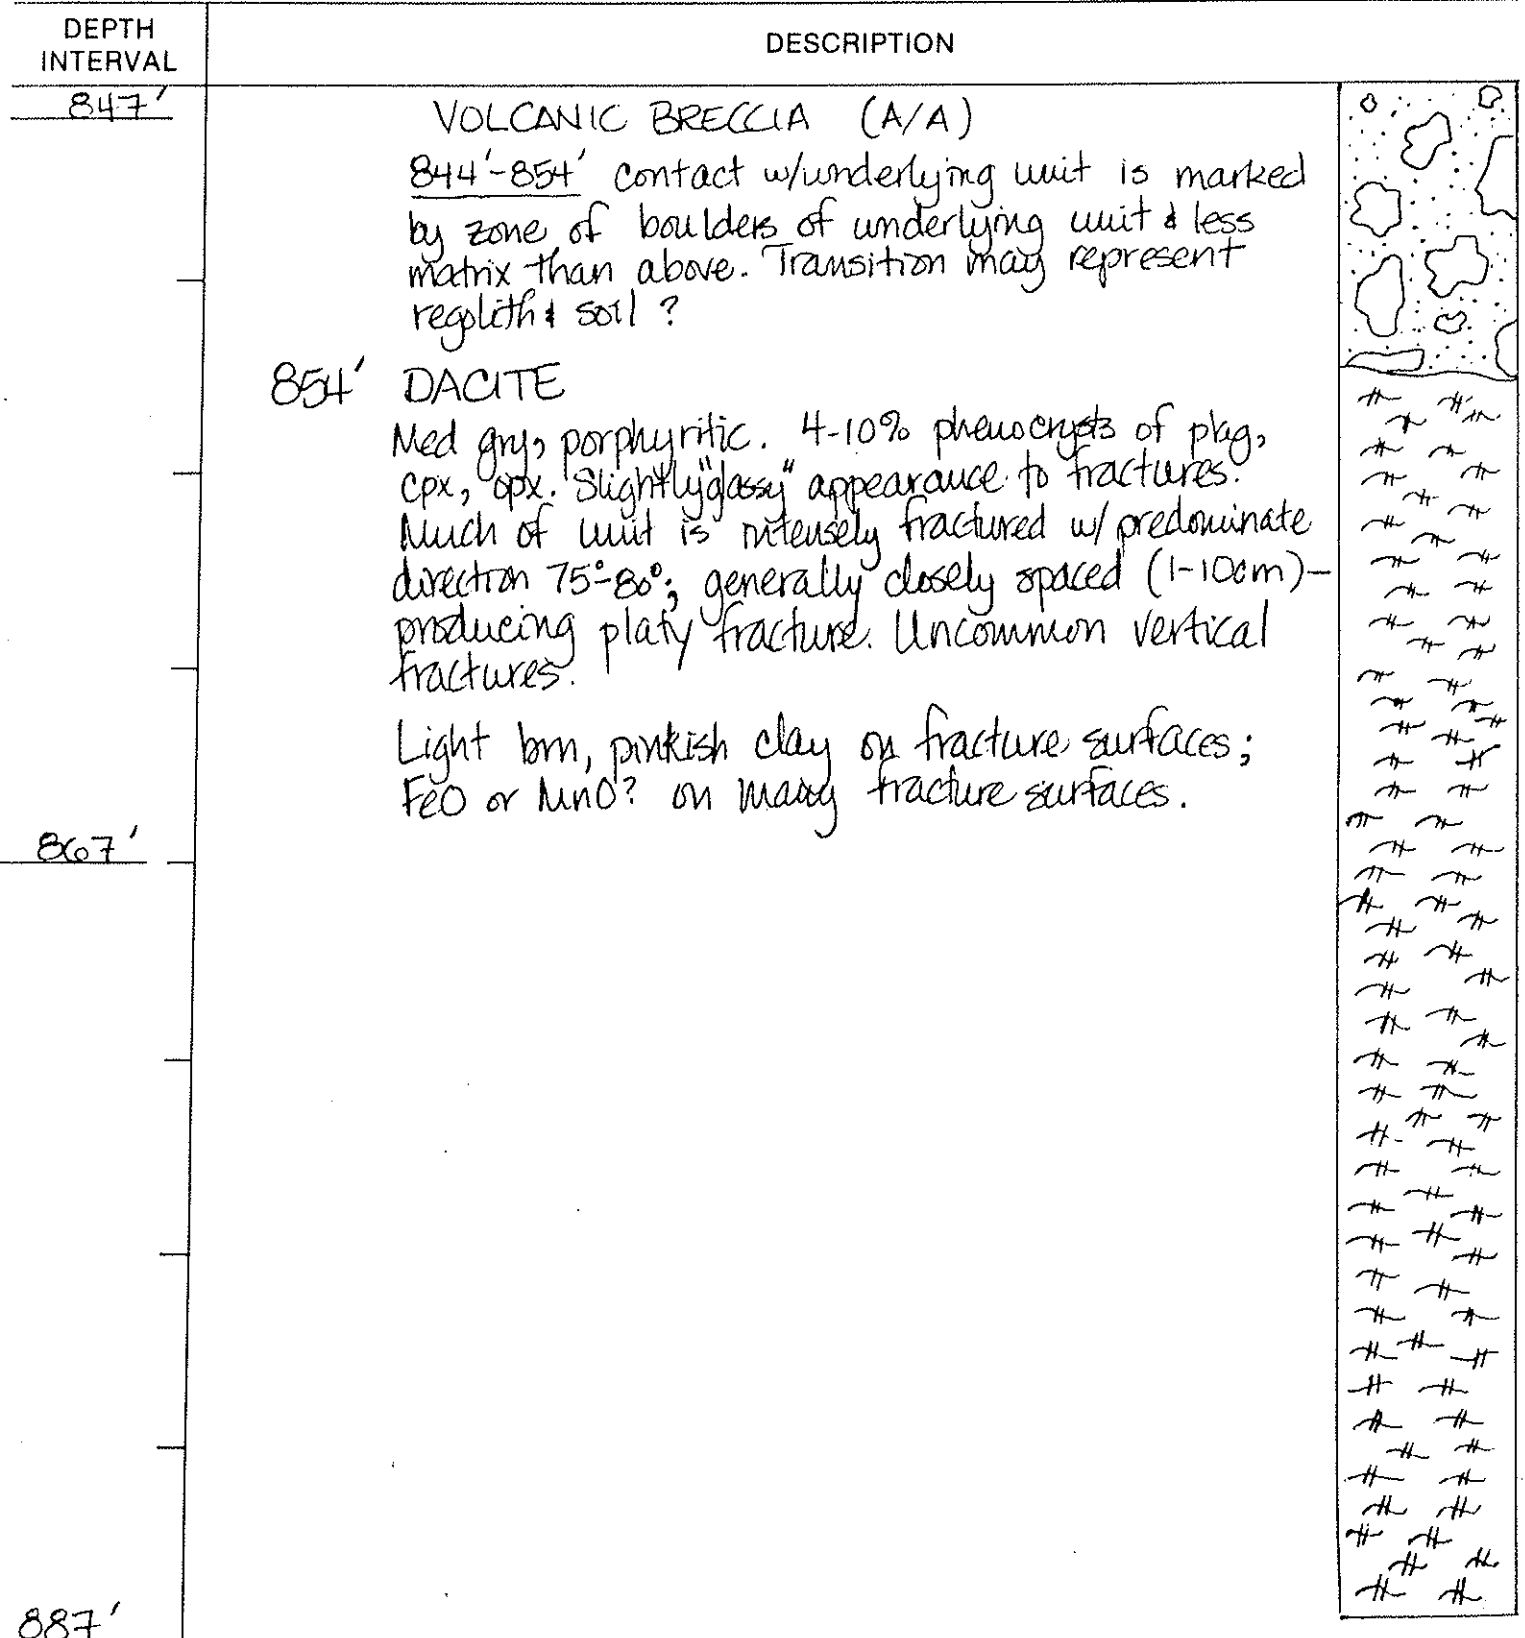 DEPTH INTERVAL
DESCRIPTION
847'
VOLCANIC BRECCIA (A/A)
844'-854' contact w/underlying unit is marked
by zone of boulders of underlying unit & less
matrix than above. Transition may represent
regolith & soil ?
854' DACITE
Med gry, porphyritic. 4-10% phenocrysts of plag,
cpx, opx. Slightly "glassy" appearance to fractures.
Much of unit is intensely fractured w/ predominate
direction 75°-80°; generally closely spaced (1-10cm)-
producing platy fracture. Uncommon vertical
fractures.
Light brn, pinkish clay on fracture surfaces;
FeO or MnO? on many fracture surfaces.
867'
887'